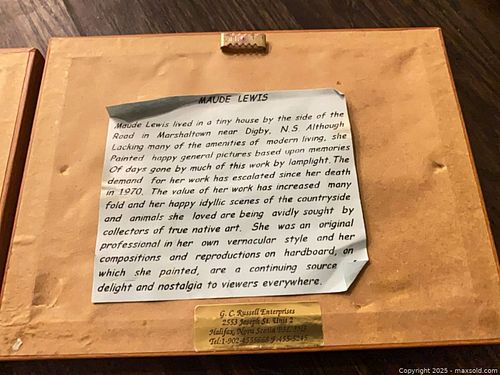 MAUDE LEWIS
Maude Lewis lived in a tiny house by the side of the
Road in Marshaltown near Digby, N.S. Although
Lacking many of the amenities of modern living, she
Painted happy general pictures based upon memories
Of days gone by much of this work by lamplight. The
demand for her work has escalated since her death
in 1970. The value of her work has increased many
fold and her happy idyllic scenes of the countryside
and animals she loved are being avidly sought by
collectors of true native art. She was an original
professional in her own vernacular style and her
compositions and reproductions on hardboard, on
which she painted, are a continuing source of
delight and nostalgia to viewers everywhere.
G. C. Russell Enterprises
2553 Joseph St. Unit 2
Halifax, Nova Scotia
Tel:1-902-
Copyright © 2025 - maxsold.com